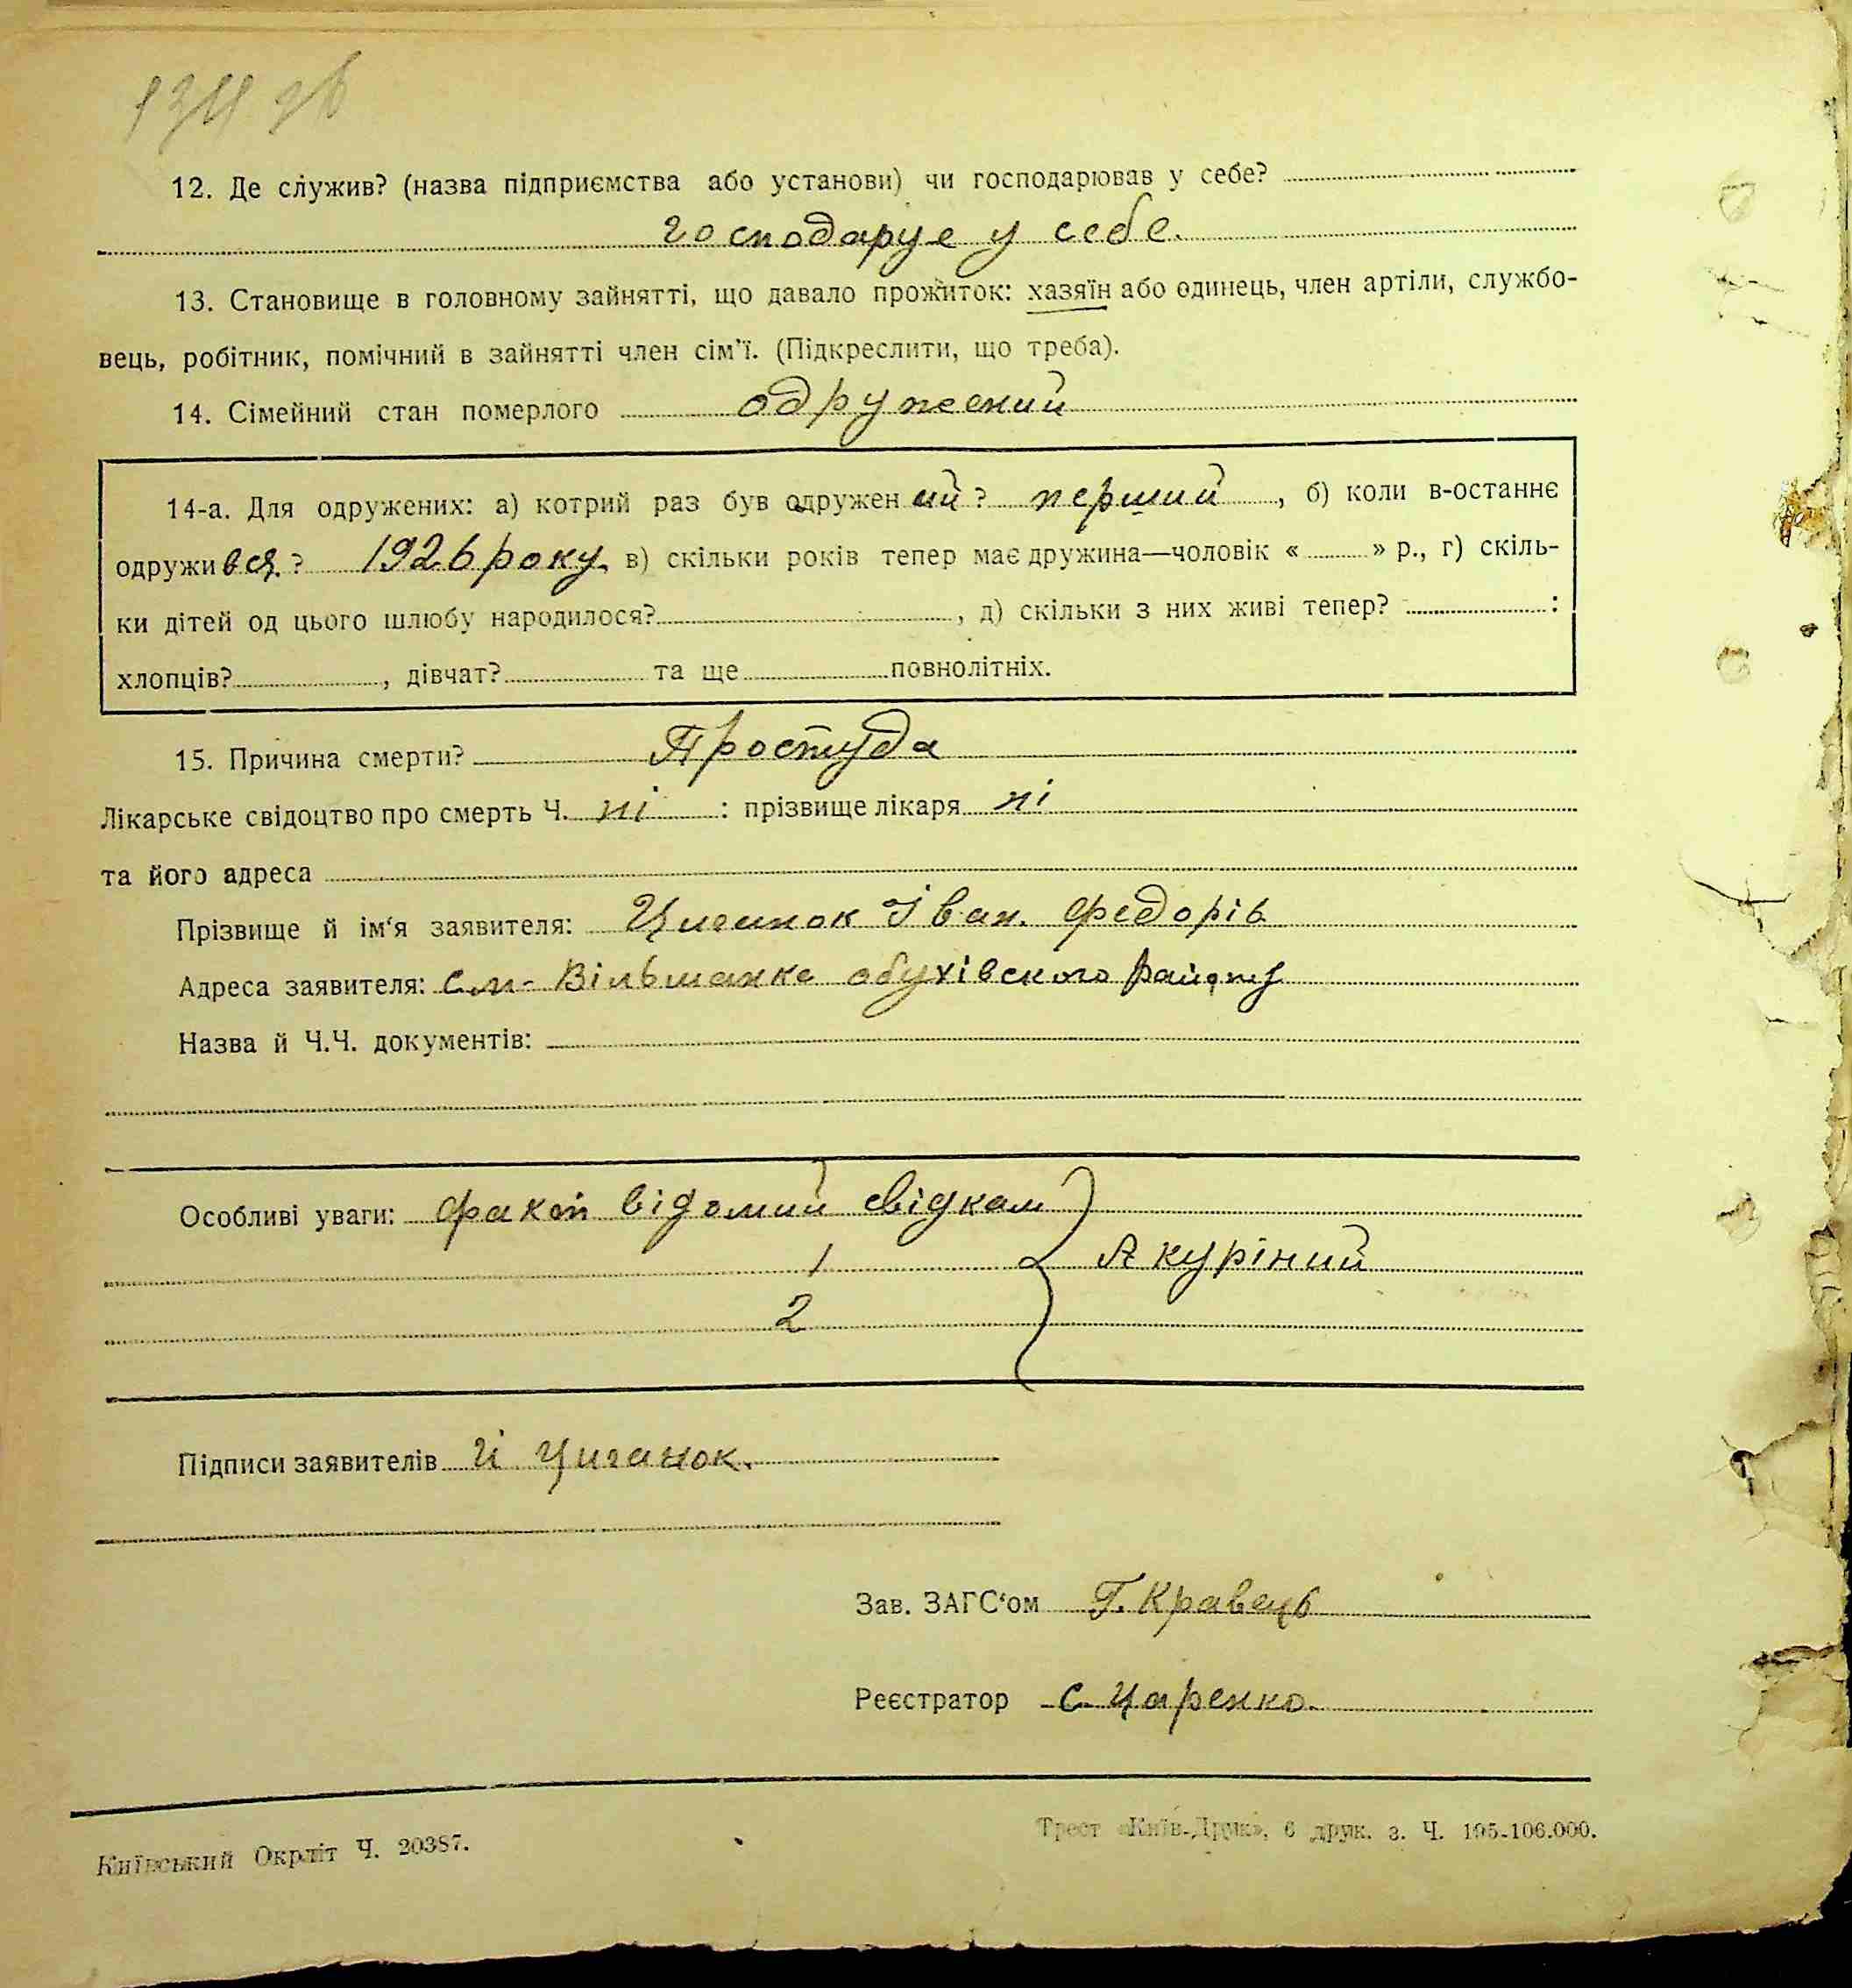 1311 зв
12. Де служив? (назва підприємства або установи) чи господарював у себе?
господарує у себе.
13. Становище в головному зайнятті, що давало прожиток: хазяїн або одинець, член артіли, службо-
вець, робітник, помічний в зайнятті член сім'ї. (Підкреслити, що треба).
14. Сімейний стан померлого одружений
14-а. Для одружених: а) котрий раз був одружен ий? перший, б) коли в-останнє
одружився? 1926 року, в) скільки років тепер має дружина—чоловік « » р., г) скіль-
ки дітей од цього шлюбу народилося? , д) скільки з них живі тепер? :
хлопців? , дівчат? та ще повнолітніх.
15. Причина смерти? Простуда
Лікарське свідоцтво про смерть Ч. ні : прізвище лікаря ні
та його адреса
Прізвище й ім'я заявителя: Циганок Іван Федорів
Адреса заявителя: Вільшанка обухівского району
Назва й Ч.Ч. документів:
Особливі уваги: факт відомий свідкам
1 Якуріний
2
Підписи заявителів Й Циганок.
Зав. ЗАГС'ом Г. Кравець
Реєстратор С. Царенко.
Київський Окрліт Ч. 20387.
Трест «Київ-Друк», 6 друк. з. Ч. 195-106.000.